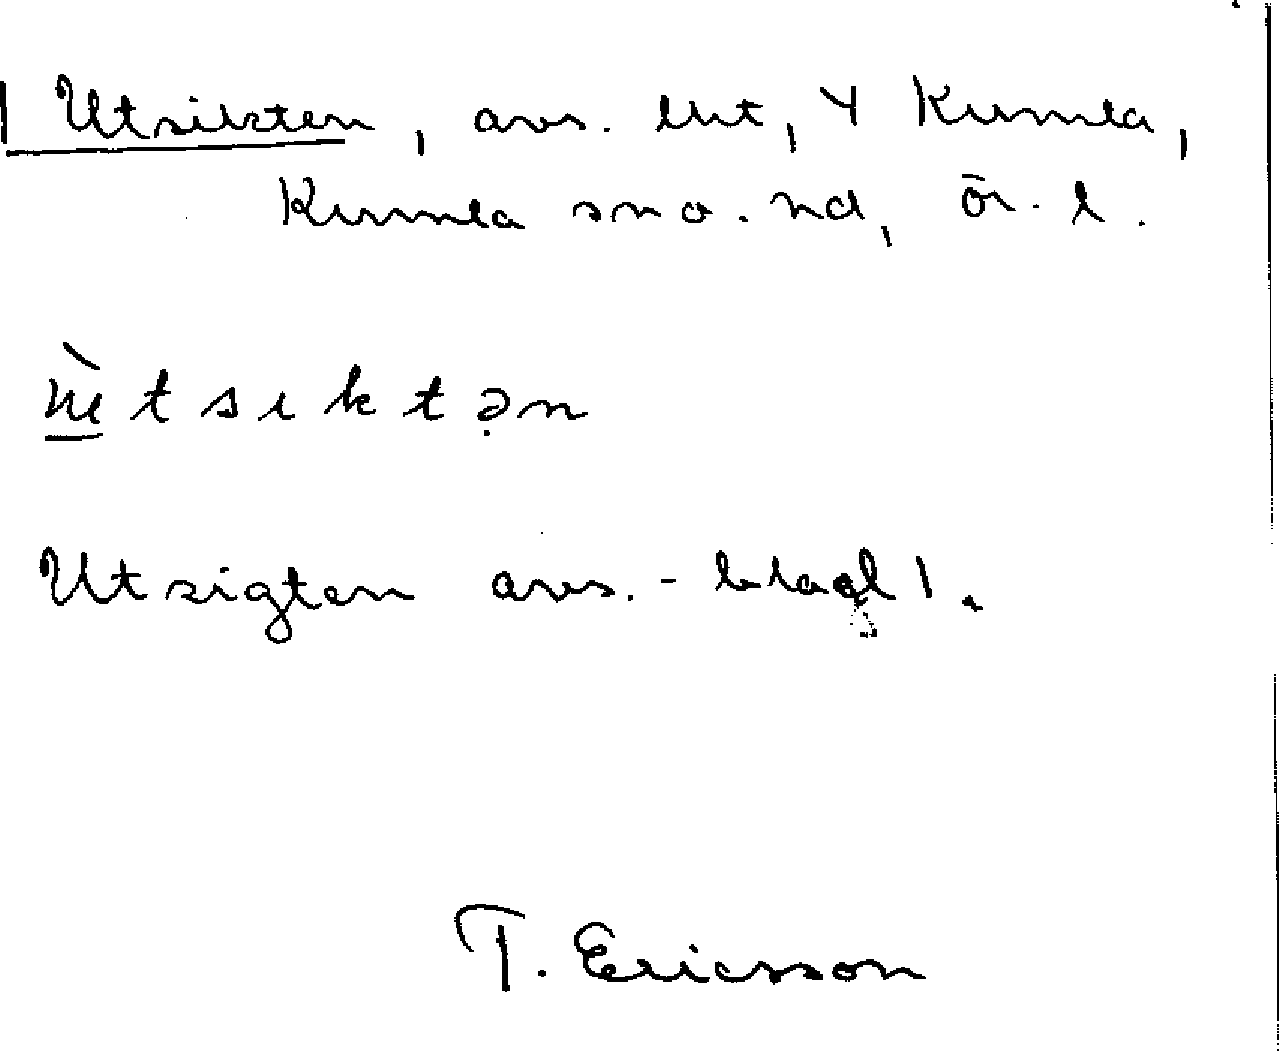 Utsikten, avs. lht, Y Kumla,
Kumla sno. hd, Ör. l.
ùtsiktən
Utsigten avs. - blad 1.
T. Ericsson